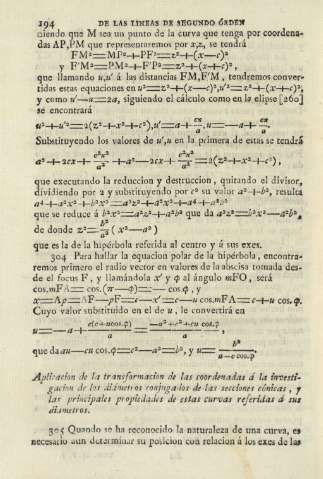 194 DE LAS LINEAS DE SEGUNDO ÓRDEN
ciendo que M sea un punto de la curva que tenga por coordena-
das AP,PM que representaremos por x,z, se tendrá
FM²=MP²+PF²=z²+(x—c)²
y F'M²=PM²+F'P²=z²+(x+c)²,
que llamando u,u' á las distancias FM,F'M, tendremos conver-
tidas estas ecuaciones en u²=z²+(x—c)²,u'²=z²+(x+c)²,
y como u'—u=2a, siguiendo el cálculo como en la elipse [260]
se encontrará
u²+u'²=2(z²+x²+c²),u'=a+cx/a,u=—a+cx/a.
Substituyendo los valores de u',u en la primera de estas se tendrá
a²+2cx+c²x²/a²+a²—2cx+c²x²/a²=2(z²+x²+c²),
que executando la reduccion y destruccion, quitando el divisor,
dividiendo por 2 y substituyendo por c² su valor a²+b², resulta
a⁴+a²x²+b²x²=a²z²+a²x²+a⁴+a²b²
que se reduce á b²x²=a²z²+a²b² que da a²z²=b²x²—a²b²,
de donde z²=b²/a²(x²—a²)
que es la de la hipérbola referida al centro y á sus exes.
304 Para hallar la equacion polar de la hipérbola, encontra-
remos primero el radio vector en valores de la abscisa tomada des-
de el focus F, y llamándola x' y φ al ángulo mFO, será
cos.mFA=cos.(π—φ)=—cos.φ, y
x=Ap=AF—pF=c—x'=c—u cos.mFA=c+u cos.φ.
Cuyo valor substituido en el de u, le convertirá en
u=—a+c(c+ucos.φ)/a=—a²+c²+cu cos.φ/a,
que da au—cu cos.φ=c²—a²=b², y u=b²/a—c cos.φ.
Aplicacion de la transformacion de las coordenadas á la investi-
gacion de los diámetros conjugados de las secciones cónicas, y
las principales propiedades de estas curvas referidas á sus
diámetros.
305 Quando se ha reconocido la naturaleza de una curva, es
necesario aun determinar su posicion con relacion á los exes de las